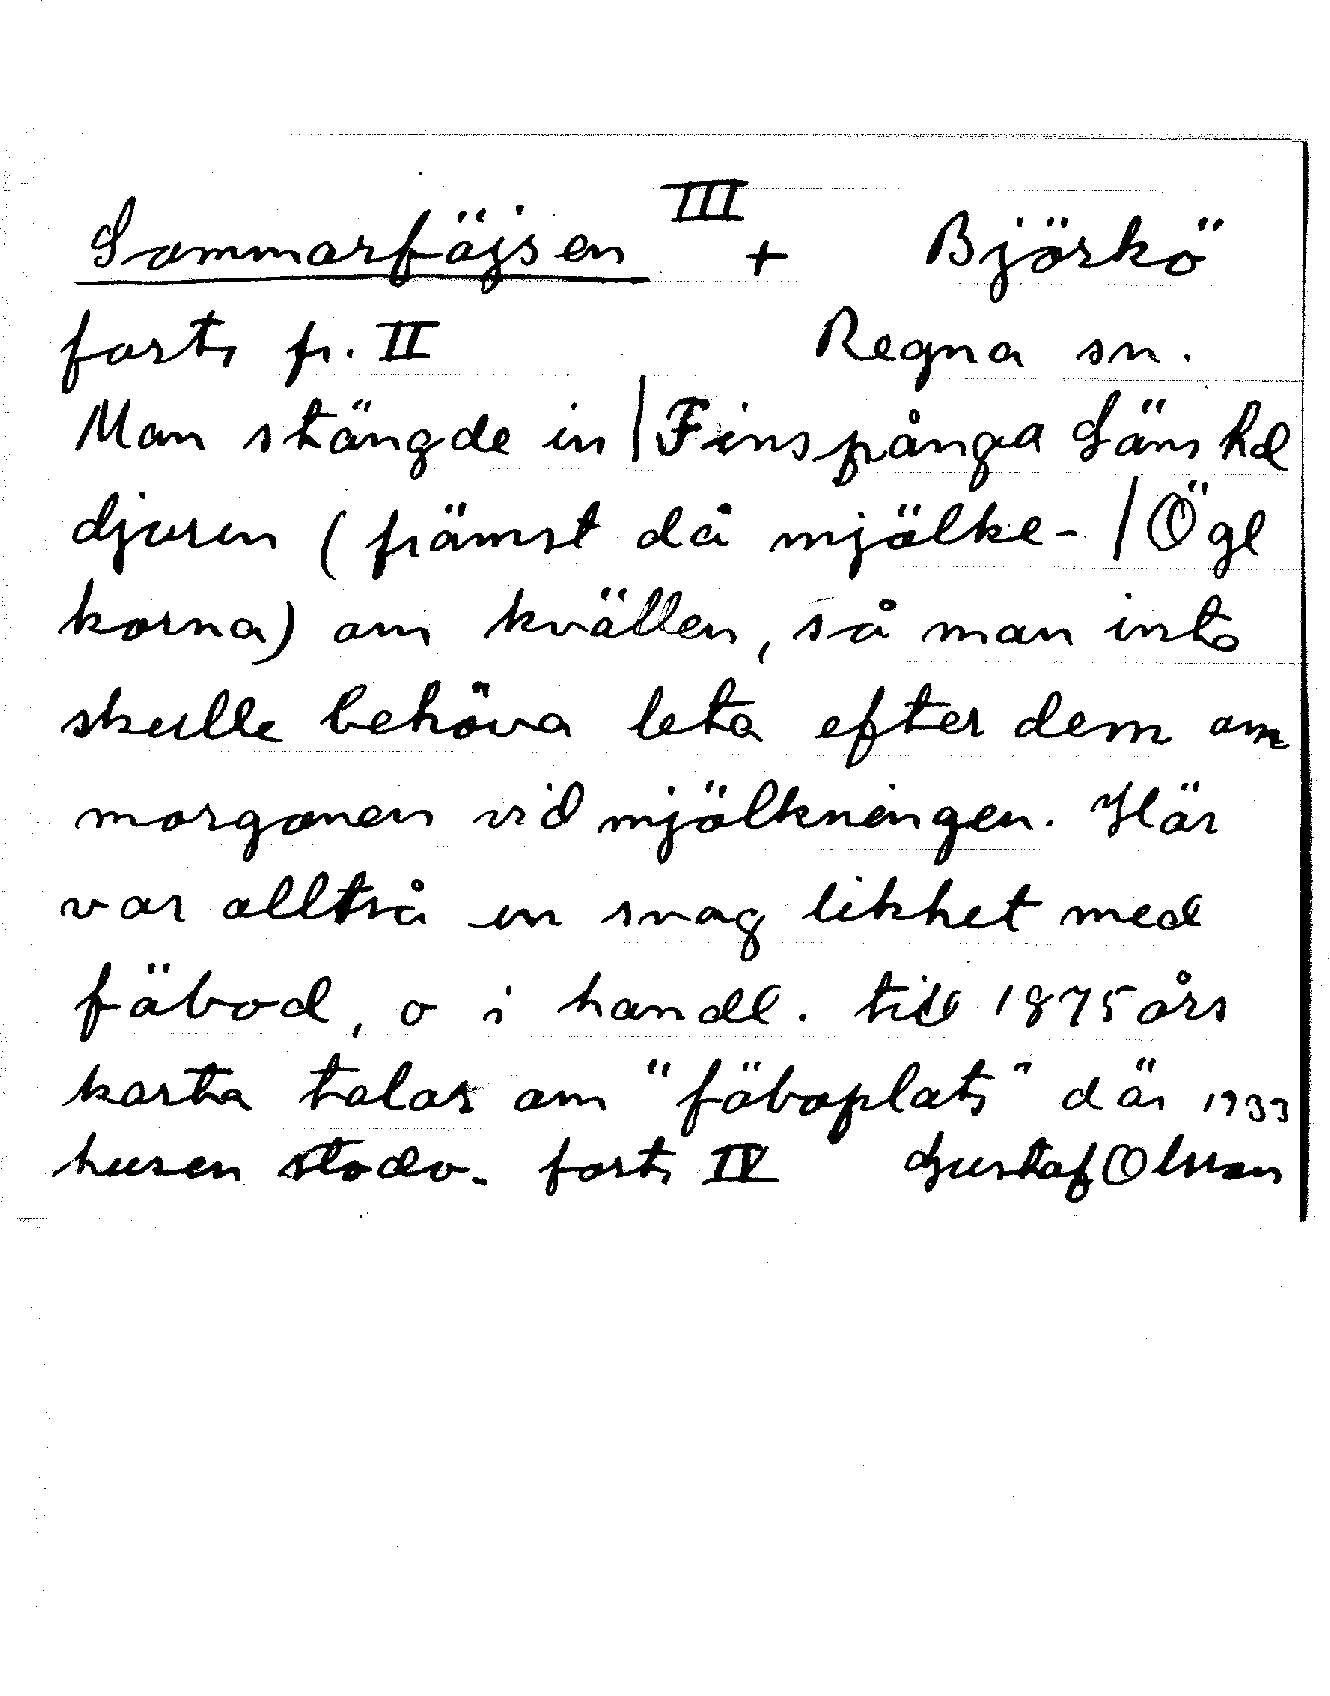 III
Sommarfäjsen + Björkö
forts fr. II Regna sn.
Man stängde in | Finspånga Läns hd
djuren (främst då mjölke- | Ögl
korna) om kvällen, så man inte
skulle behöva leta efter dem om
morgonen vid mjölkningen. Här
var alltså en svag likhet med
fäbod, o i handl. till 1875 års
karta talas om "fäboplats" där 1933
husen stodo. forts IV Gustaf Olsson